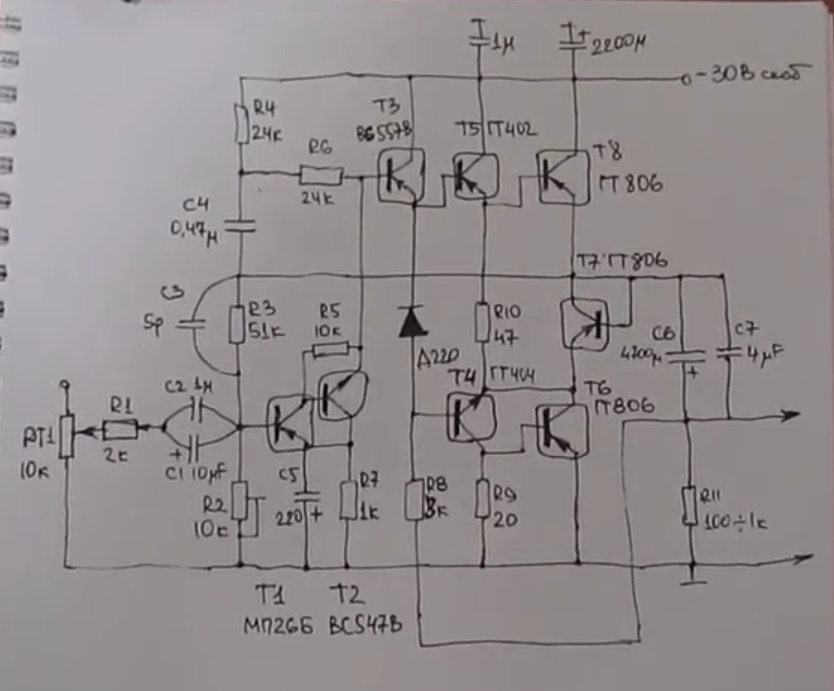 1μ
+ 2200μ
-30В стаб
R4
24к
T3
BC557B
T5 ГТ402
T8
ГТ806
R6
24к
C4
0,47μ
T7 ГТ806
C3
5p
R3
51к
R5
10к
R10
47
C6
4700μ
+
C7
4μF
Д220
T4
ГТ404
T6
ГТ806
C2 1μ
R1
2к
RT1
10к
+
C1 10μF
C5
220 +
R7
1к
R8
3к
R9
20
R2
10к
R11
100÷1к
T1
МП26Б
T2
BC547B